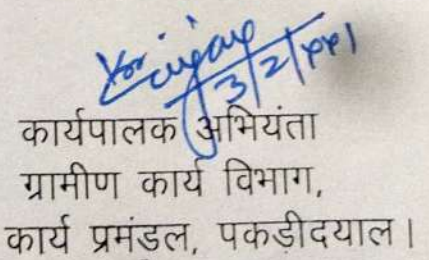 कार्यपालक अभियंता
ग्रामीण कार्य विभाग,
कार्य प्रमंडल, पकड़ीदयाल।